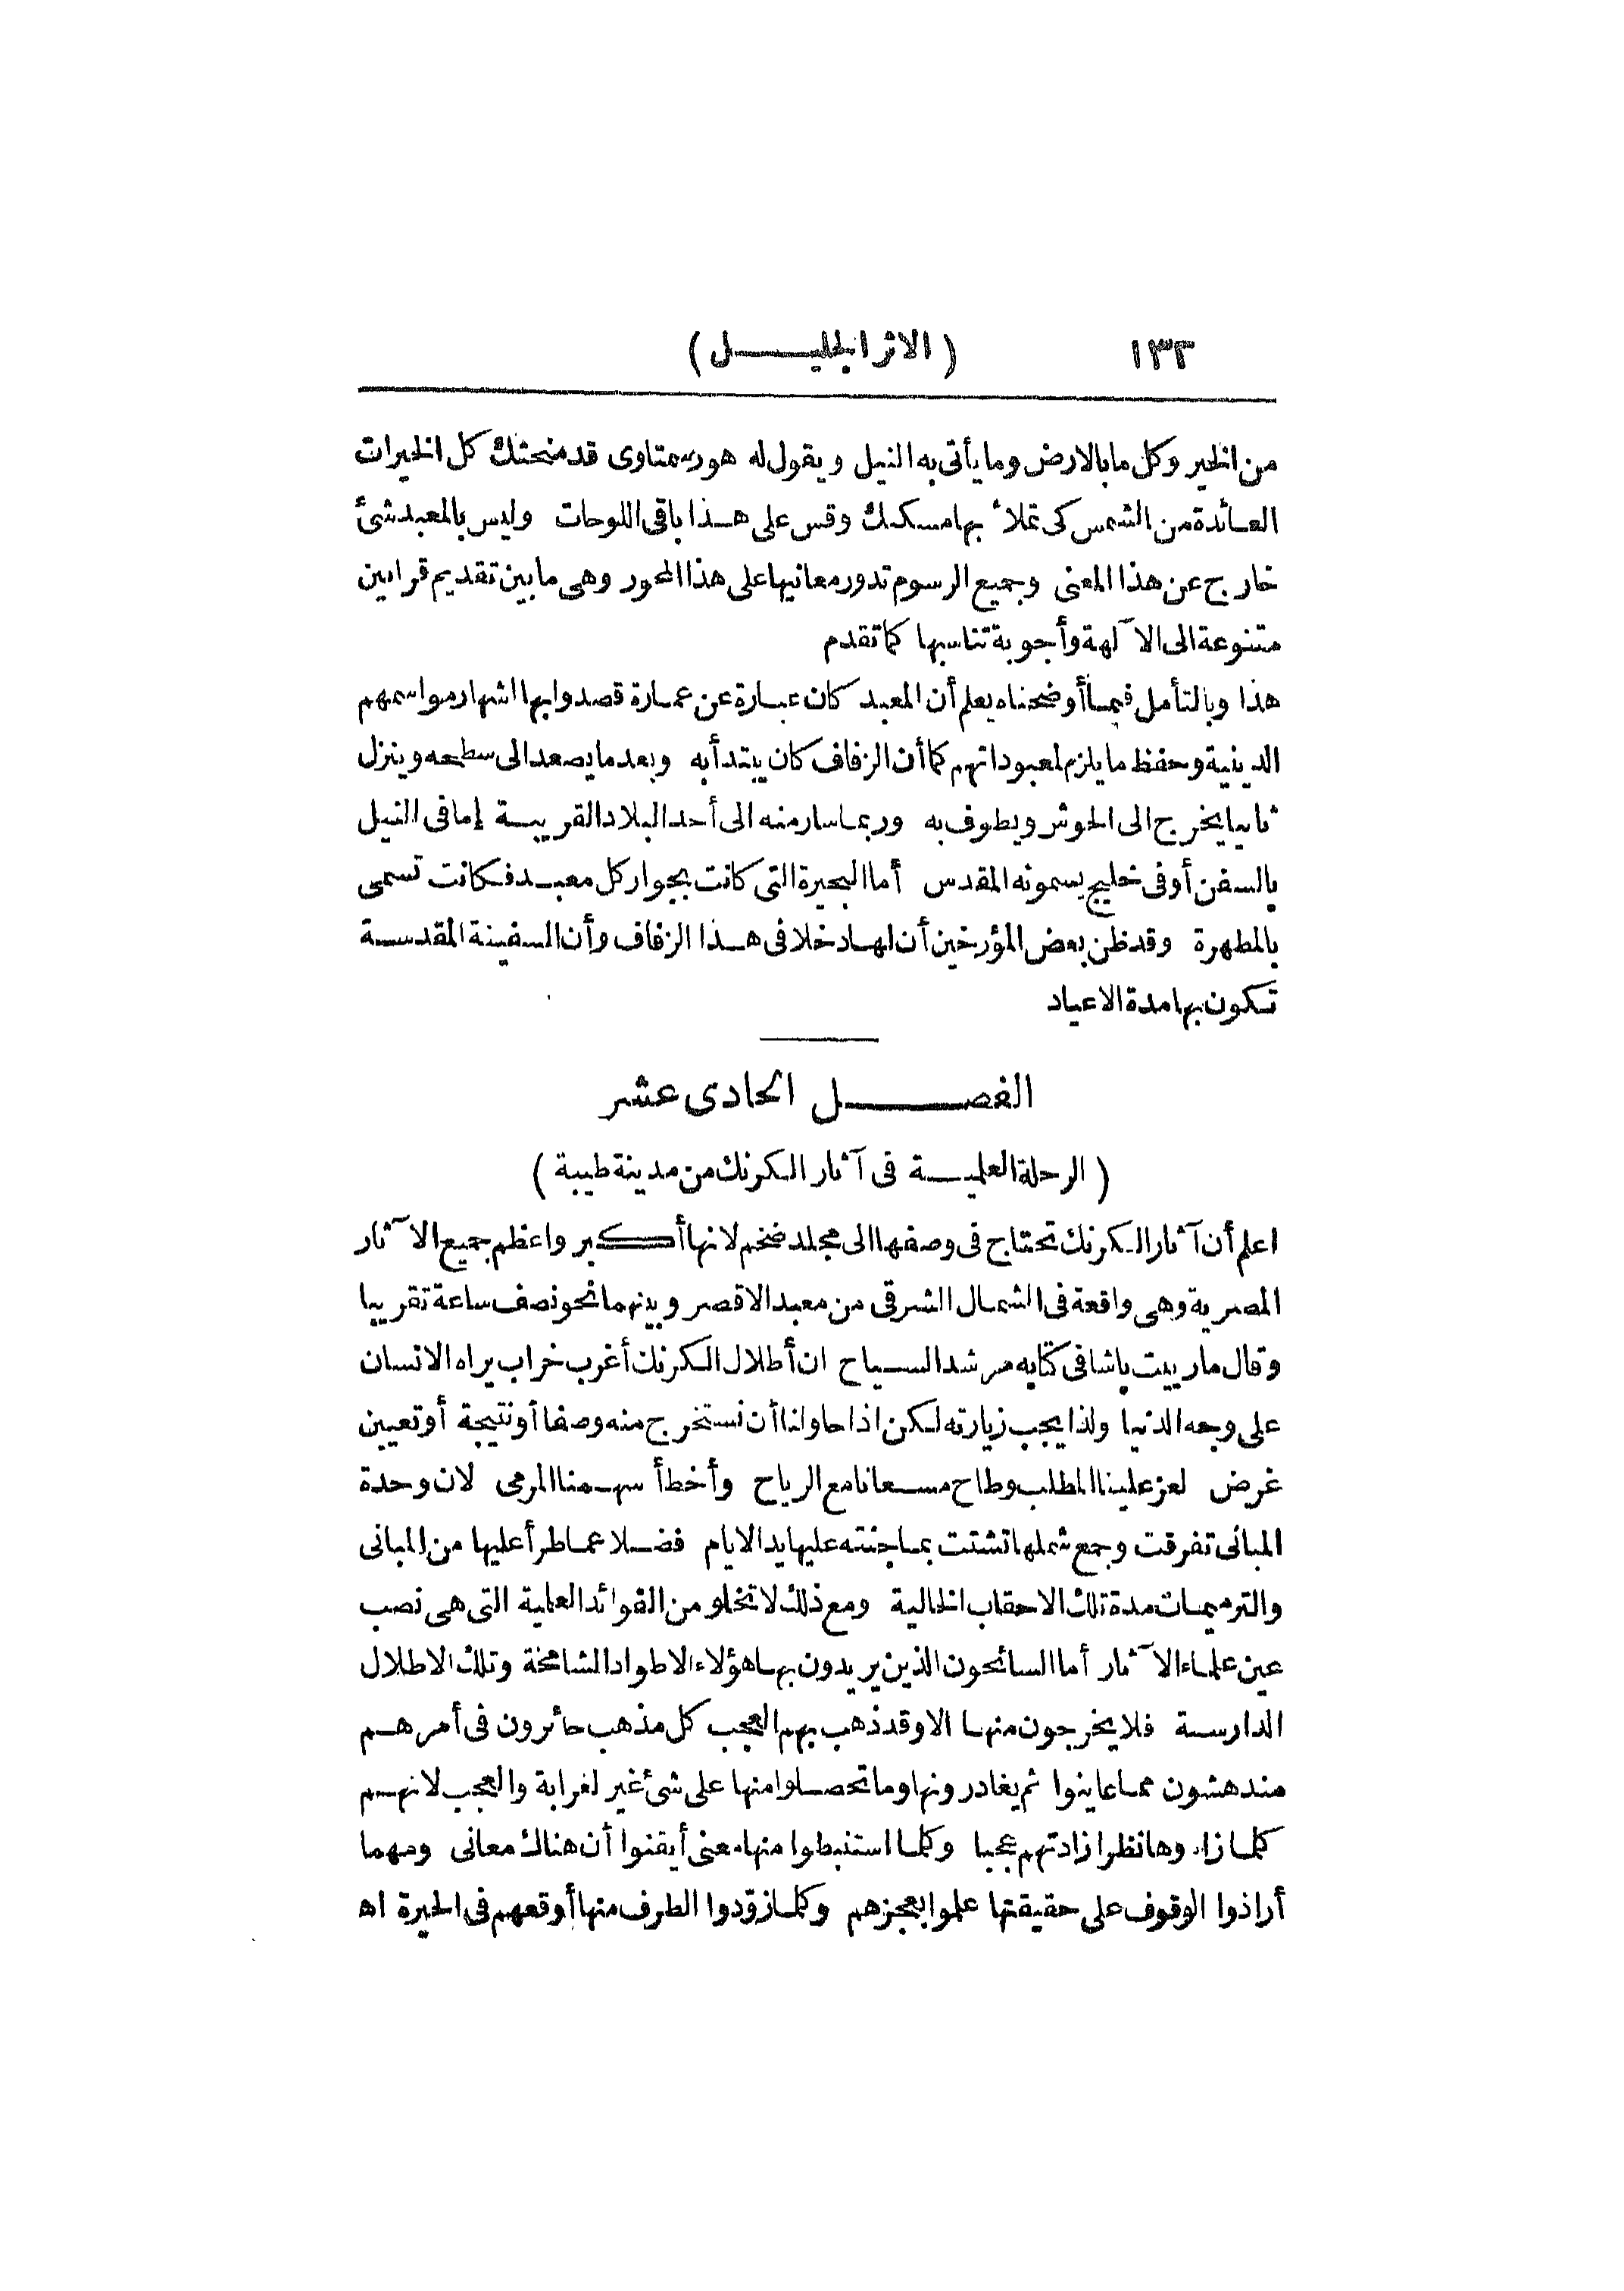 ١٣٢ (الاثر الجليل)
من الخير وكل ما بالارض وما يأتى به النيل ويقول له هورسمتاوى قد منحتك كل الخيرات
العائدة من الشمس كى تملأ بها مسكنك وقس على هذا باقى اللوحات وليس بالمعبد شئ
خارج عن هذا المعنى وجميع الرسوم تدور معانيها على هذا المحور وهى ما بين تقديم قرابين
متنوعة الى الآلهة وأجوبة تناسبها كما تقدم
هذا وبالتأمل فيما أوضحناه يعلم أن المعبد كان عبارة عن عمارة قصدوا بها اشهار مواسمهم
الدينية وحفظ ما يلزم لمعبوداتهم كما أن الزفاف كان يبتدأ به وبعد ما يصعد الى سطحه وينزل
ثانيا يخرج الى الحوش ويطوف به وربما سار منه الى أحد البلاد القريبة إما فى النيل
بالسفن أو فى خليج يسمونه المقدس أما البحيرة التى كانت بجوار كل معبد فكانت تسمى
بالمطهرة وقد ظن بعض المؤرخين أن لها دخلا فى هذا الزفاف وأن السفينة المقدسة
تكون بها مدة الاعياد
الفصل الحادى عشر
(الرحلة العلمية فى آثار الكرنك من مدينة طيبة)
اعلم أن آثار الكرنك تحتاج فى وصفها الى مجلد ضخم لانها أكبر واعظم جميع الآثار
المصرية وهى واقعة فى الشمال الشرقى من معبد الاقصر وبينهما نحو نصف ساعة تقريبا
وقال مارييت باشا فى كتابه مرشد السياح ان أطلال الكرنك أغرب خراب يراه الانسان
على وجه الدنيا ولذا يجب زيارته لكن اذا حاولنا أن نستخرج منه وصفا أو نتيجة أو تعيين
غرض لعز علينا المطلب وطاح مسعانا مع الرياح وأخطأ سهمنا المرمى لان وحدة
المبانى تفرقت وجمع شملها تشتت بما جنته عليها يد الايام فضلا عما طرأ عليها من المبانى
والترميمات مدة تلك الاحقاب الخالية ومع ذلك لا تخلو من الفوائد العلمية التى هى نصب
عين علماء الآثار أما السائحون الذين يريدون بها هؤلاء الاطواد الشامخة وتلك الاطلال
الدارسة فلا يخرجون منها الا وقد ذهب بهم العجب كل مذهب حائرون فى أمرهم
مندهشون مما عاينوا ثم يغادرونها وما تحصلوا منها على شئ غير لغرابة والعجب لانهم
كلما زا. وها نظرا زادتهم عجبا وكلما استنبطوا منها معنى أيقنوا أن هناك معانى ومهما
أراذوا الوقوف على حقيقتها علموا بعجزهم وكلما زوّدوا الطرف منها أوقعهم فى الحيرة اه